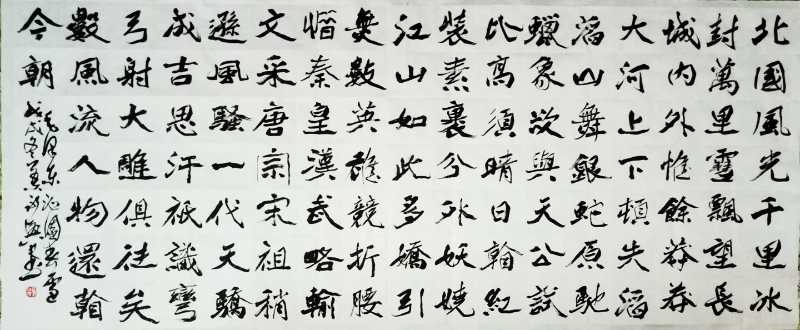 北國風光千里冰
封萬里雪飄望長
城内外惟餘莽莽
大河上下頓失滔
滔山舞銀蛇原馳
蠟象欲與天公試
比高須晴日看紅
裝素裹分外妖嬈
江山如此多嬌引
無數英雄競折腰
惜秦皇漢武略輸
文采唐宗宋祖稍
遜風騷一代天驕
成吉思汗祇識彎
弓射大雕俱往矣
數風流人物還看
今朝
毛澤東沁園春雪
戊戌冬